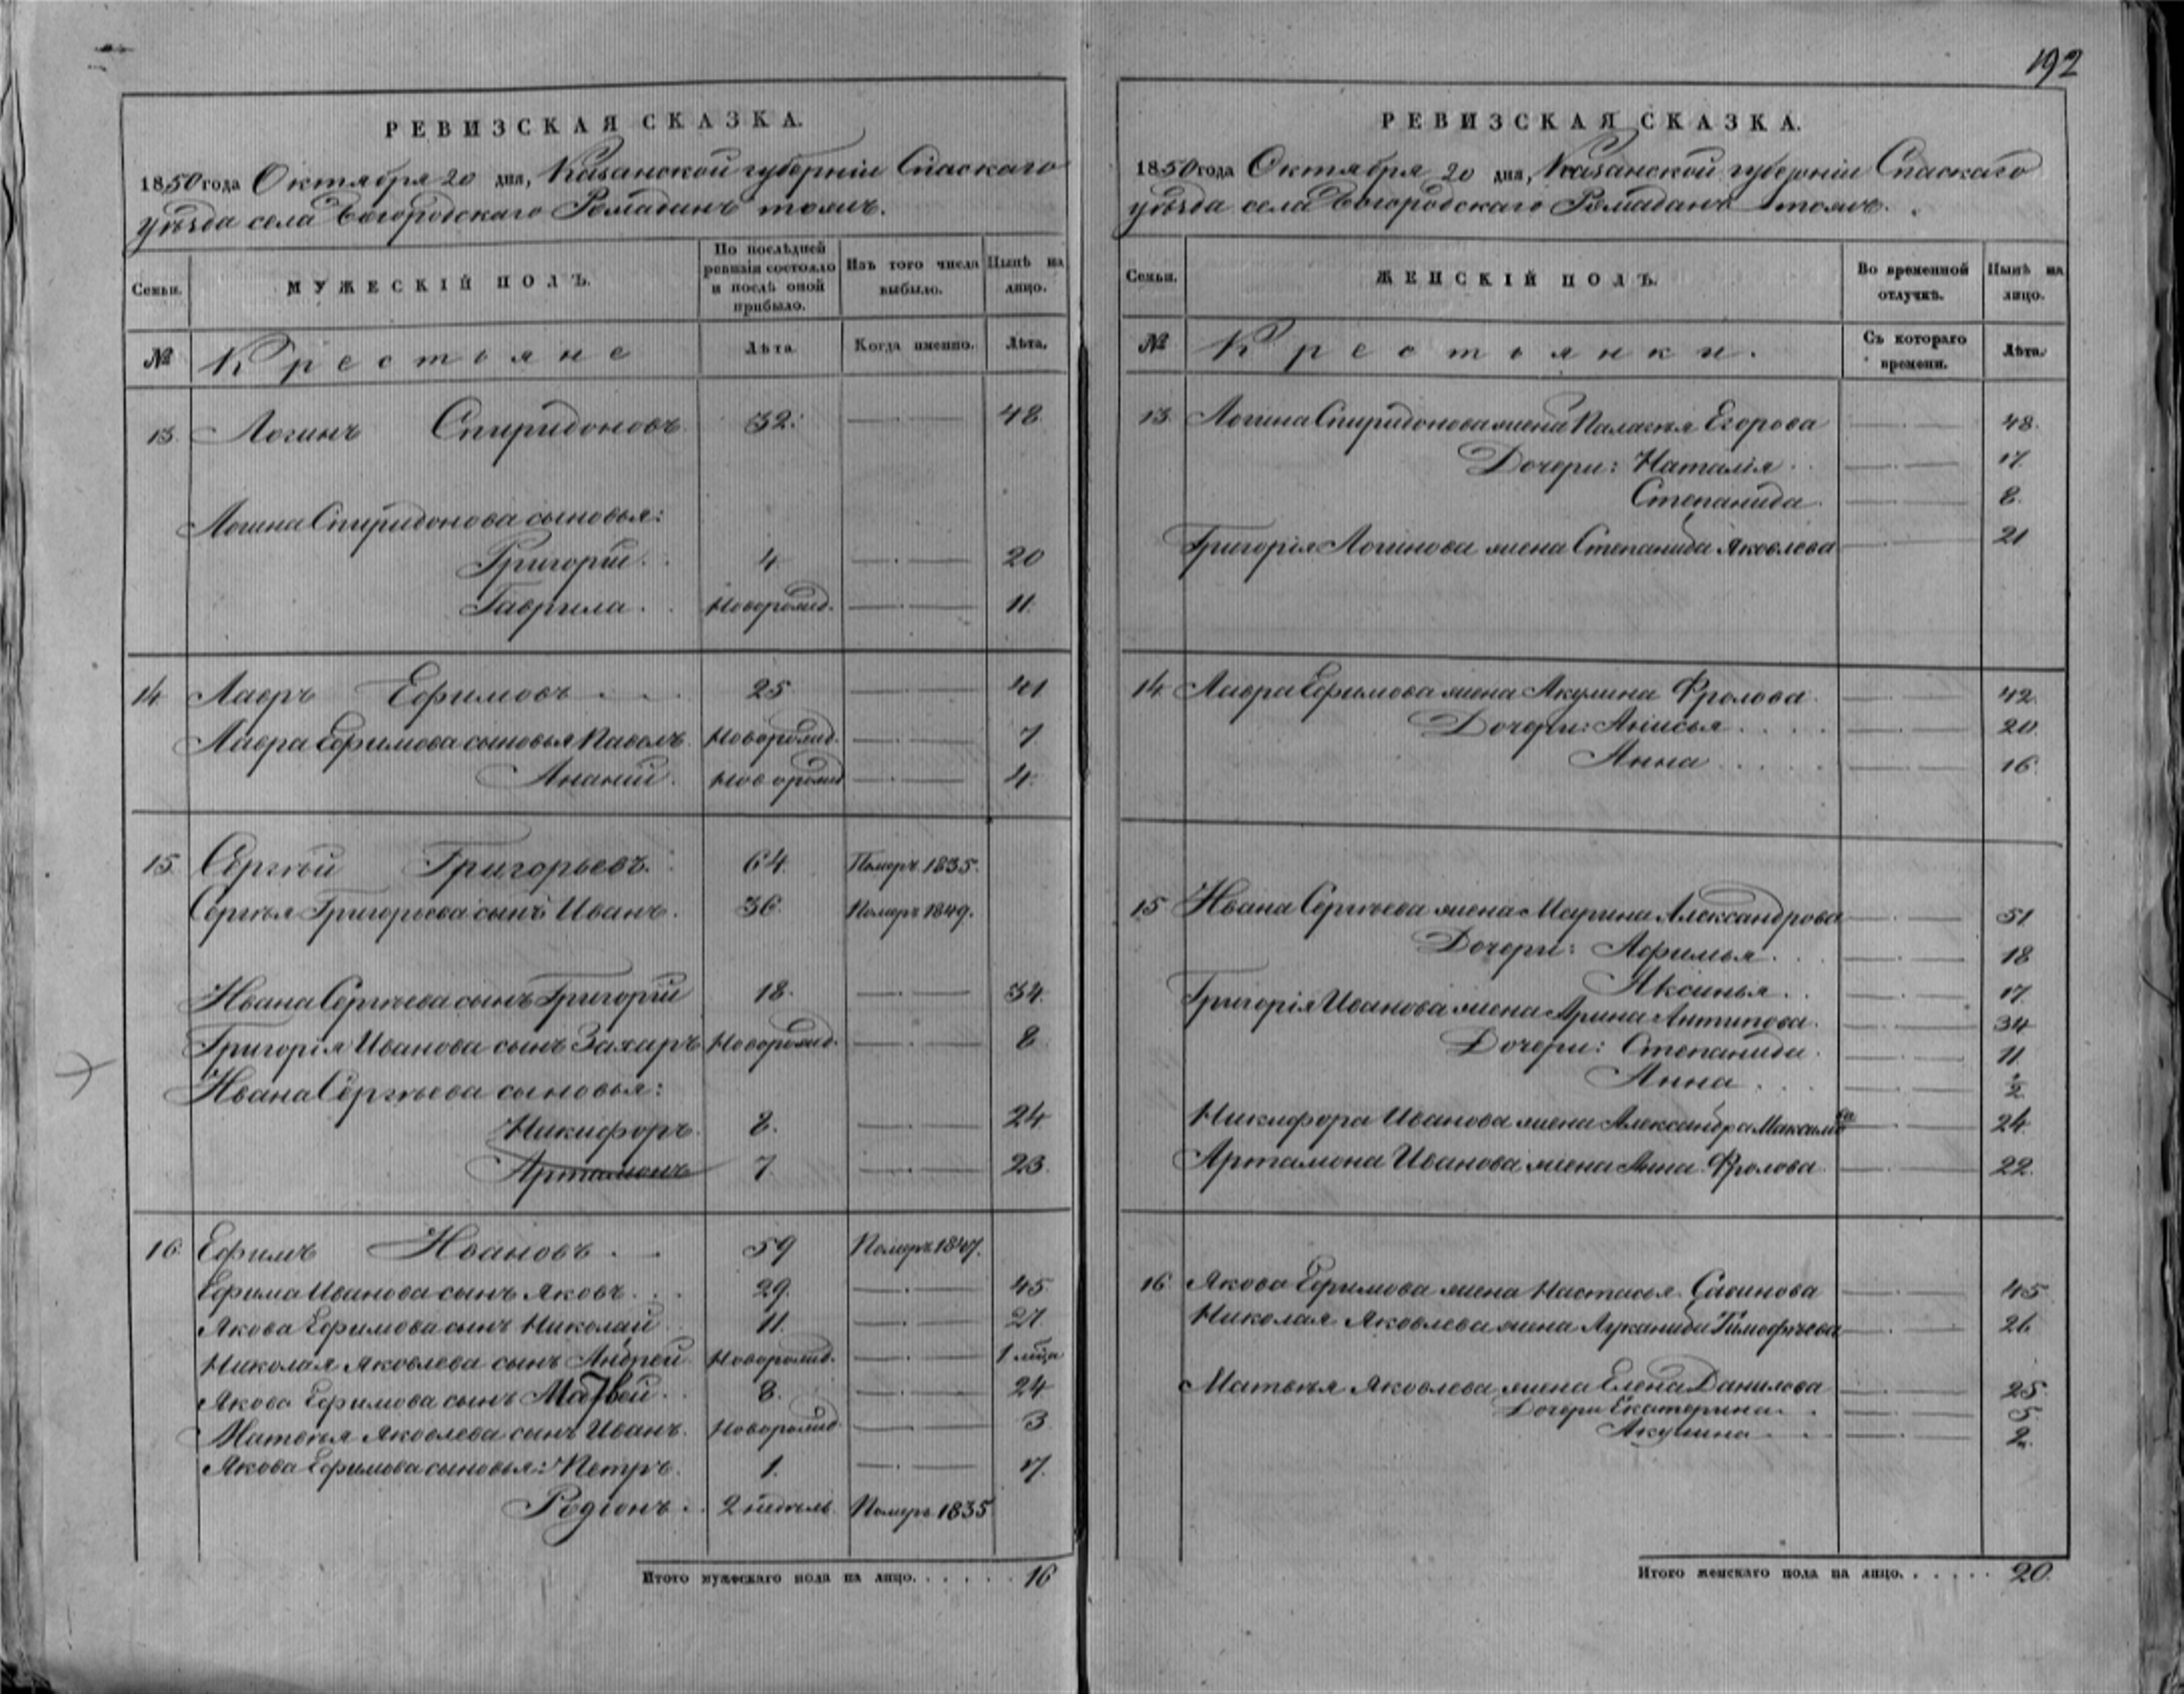 192
РЕВИЗСКАЯ СКАЗКА.
1850 года Октября 20 дня, Казанской губерніи Спаскаго
уѣзда села Богородскаго Ромадань тожъ.
Семьи. МУЖЕСКІЙ ПОЛЪ. По послѣдней ревизіи состояло и послѣ оной прибыло. Изъ того числа выбыло. Нынѣ на лицо.
№ Крестьяне Лѣта. Когда именно. Лѣта.
13. Логинъ Спиридоновъ 32. 48.
Логина Спиридонова сыновья:
Григорій 4 20
Гаврила Новорожд. 11.
14. Лавръ Ефимовъ 25 41
Лавра Ефимова сыновья Павелъ Новорожд. 7
Ананій Новорожд. 4.
15. Сергѣй Григорьевъ 64. Померъ 1835.
Сергѣя Григорьева сынъ Иванъ. 36. Померъ 1849.
Ивана Сергѣева сынъ Григорій 18. 34.
Григорія Иванова сынъ Захаръ Новорожд. 8
Ивана Сергѣева сыновья:
Никифоръ. 8. 24
Артамонъ 7. 23.
16. Ефимъ Ивановъ 59 Померъ 1847.
Ефима Иванова сынъ Яковъ. 29. 45
Якова Ефимова сынъ Николай 11. 27
Николая Яковлева сынъ Андрей Новорожд. 1 мѣца
Якова Ефимова сынъ Матвей. 8. 24
Матвѣя Яковлева сынъ Иванъ. Новорожд. 3
Якова Ефимова сыновья: Петръ. 1. 17.
Родіонъ 2 недѣль Померъ 1835
Итого мужескаго пола на лицо. 16
РЕВИЗСКАЯ СКАЗКА.
1850 года Октября 20 дня, Казанской губерніи Спаскаго
уѣзда села Богородскаго Ромадань тожъ.
Семьи. ЖЕНСКІЙ ПОЛЪ. Во временной отлучкѣ. Нынѣ на лицо.
№ Крестьянки. Съ котораго времени. Лѣта.
13. Логина Спиридонова жена Палагѣя Егорова 48.
Дочери: Наталія 17.
Степанида 8.
Григорія Логинова жена Степанида Яковлева 21
14. Лавра Ефимова жена Акулина Фролова 42.
Дочери: Анисья 20.
Анна 16.
15 Ивана Сергѣева жена Марина Александрова 51
Дочери: Афимья 18
Аксинья 17.
Григорія Иванова жена Арина Антипова 34
Дочери: Степанида 11
Анна ½
Никифора Иванова жена Александра Максимова 24.
Артамона Иванова жена Анна Фролова 22.
16. Якова Ефимова жена Настасья Савинова 45.
Николая Яковлева жена Луканида Тимофѣева 26.
Матвѣя Яковлева жена Елена Данилова 25.
Дочери Екатерина 5.
Акулина 2.
Итого женскаго пола на лицо. 20.